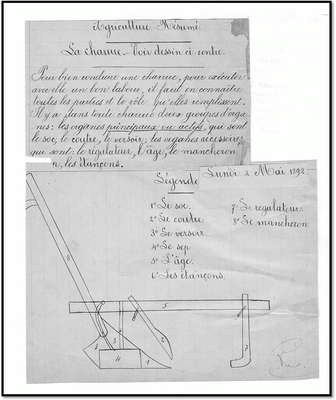 Agriculture Résumé
La charrue. - Voir dessin ci-contre.
Pour bien conduire une charrue, pour exécuter
avec elle un bon labour, il faut en connaître
toutes les parties et le rôle qu'elles remplissent.
Il y a dans toute charrue deux groupes d'orga
nes: les organes principaux ou actifs, qui sont
le soc, le coutre, le versoir; les organes accessoires
qui sont: le régulateur, l'âge, le mancheron
les étançons.
Lundi 2 Mai 1892.
Légende
1º Le soc.
2º Le coutre.
3º Le versoir.
4º Le sep.
5º L'âge.
6º Les étançons.
7º Le regulateur.
8º Le mancheron
8
5
6
2
7
3
4
1